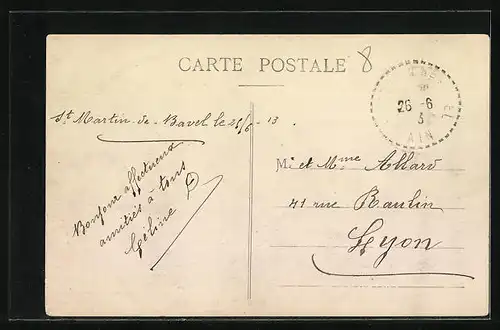 CARTE POSTALE
8
26 - 6
AIN
St Martin-de-Bavel le 25/6 - 13
Bonjour affectueux
amitiés à tous
Céline
M. et Mme Allard
41 rue Raulin
Lyon